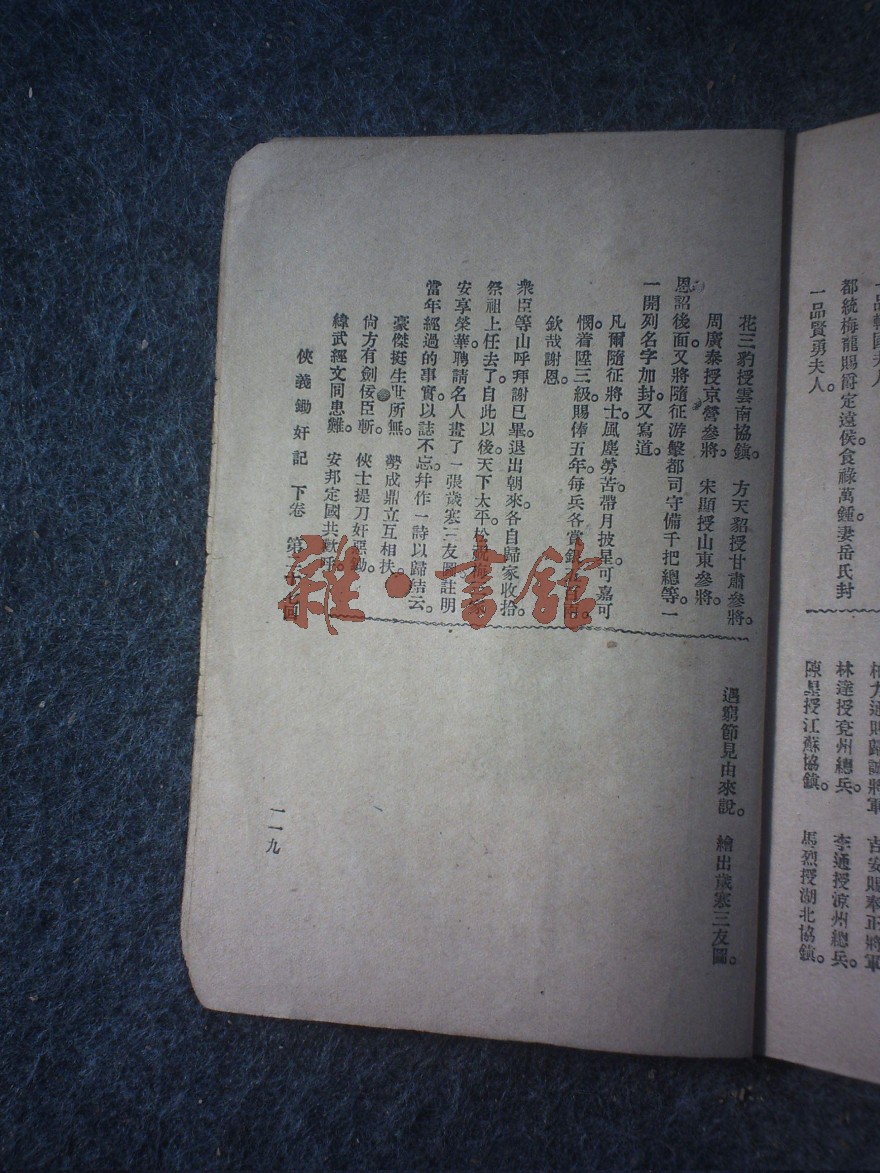 一品賢勇夫人。
都統梅龍賜爵定遠侯。食祿萬鍾。妻岳氏封
林達授兗州總兵。 李通授涼州總兵。
陳星授江蘇協鎮。 馬烈授湖北協鎮。
花三豹授雲南協鎮。 方天貂授甘肅參將。
周廣泰授京營參將。 宋顯授山東參將。
恩詔後面。又將隨征游擊都司守備千把總等。一
一開列名字加封。又寫道。
凡爾隨征將士。風塵勞苦。帶月披星。可嘉可
憫。着陞三級。賜俸五年。每兵各賞銀
欽哉謝恩。
衆臣等山呼拜謝已畢。退出朝來。各自歸家收拾
祭祖上任去了。自此以後。天下太平。松
安享榮華。聘請名人。畫了一張歲寒三友圖。註明
當年經過的事實。以誌不忘。幷作一詩以歸結云。
豪傑挺生世所無。 勢成鼎立互相扶。
尙方有劍佞臣斬。 俠士提刀奸惡鋤。
緯武經文同患難。 安邦定國共
遇窮節見由來說。 繪出歲寒三友圖。
俠義鋤奸記 下卷 第
一一九
雜·書館